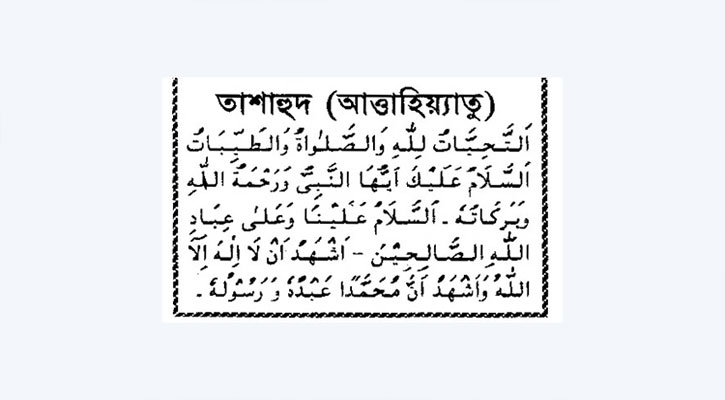 তাশাহুদ (আত্তাহিয়্যাতু)
اَلتَّحِيَّاتُ لِلّٰهِ وَالصَّلٰوةُ وَالطَّيِّبَاتُ
اَلسَّلَامُ عَلَيْكَ اَيُّهَا النَّبِيُّ وَرَحْمَةُ اللّٰهِ
وَبَرَكَاتُهٗ ـ اَلسَّلَامُ عَلَيْنَا وَعَلٰى عِبَادِ
اللّٰهِ الصَّالِحِيْنَ – اَشْهَدُ اَنْ لَا اِلٰهَ اِلَّا
اللّٰهُ وَاَشْهَدُ اَنَّ مُحَمَّدًا عَبْدُهٗ وَرَسُوْلُهٗ ـ